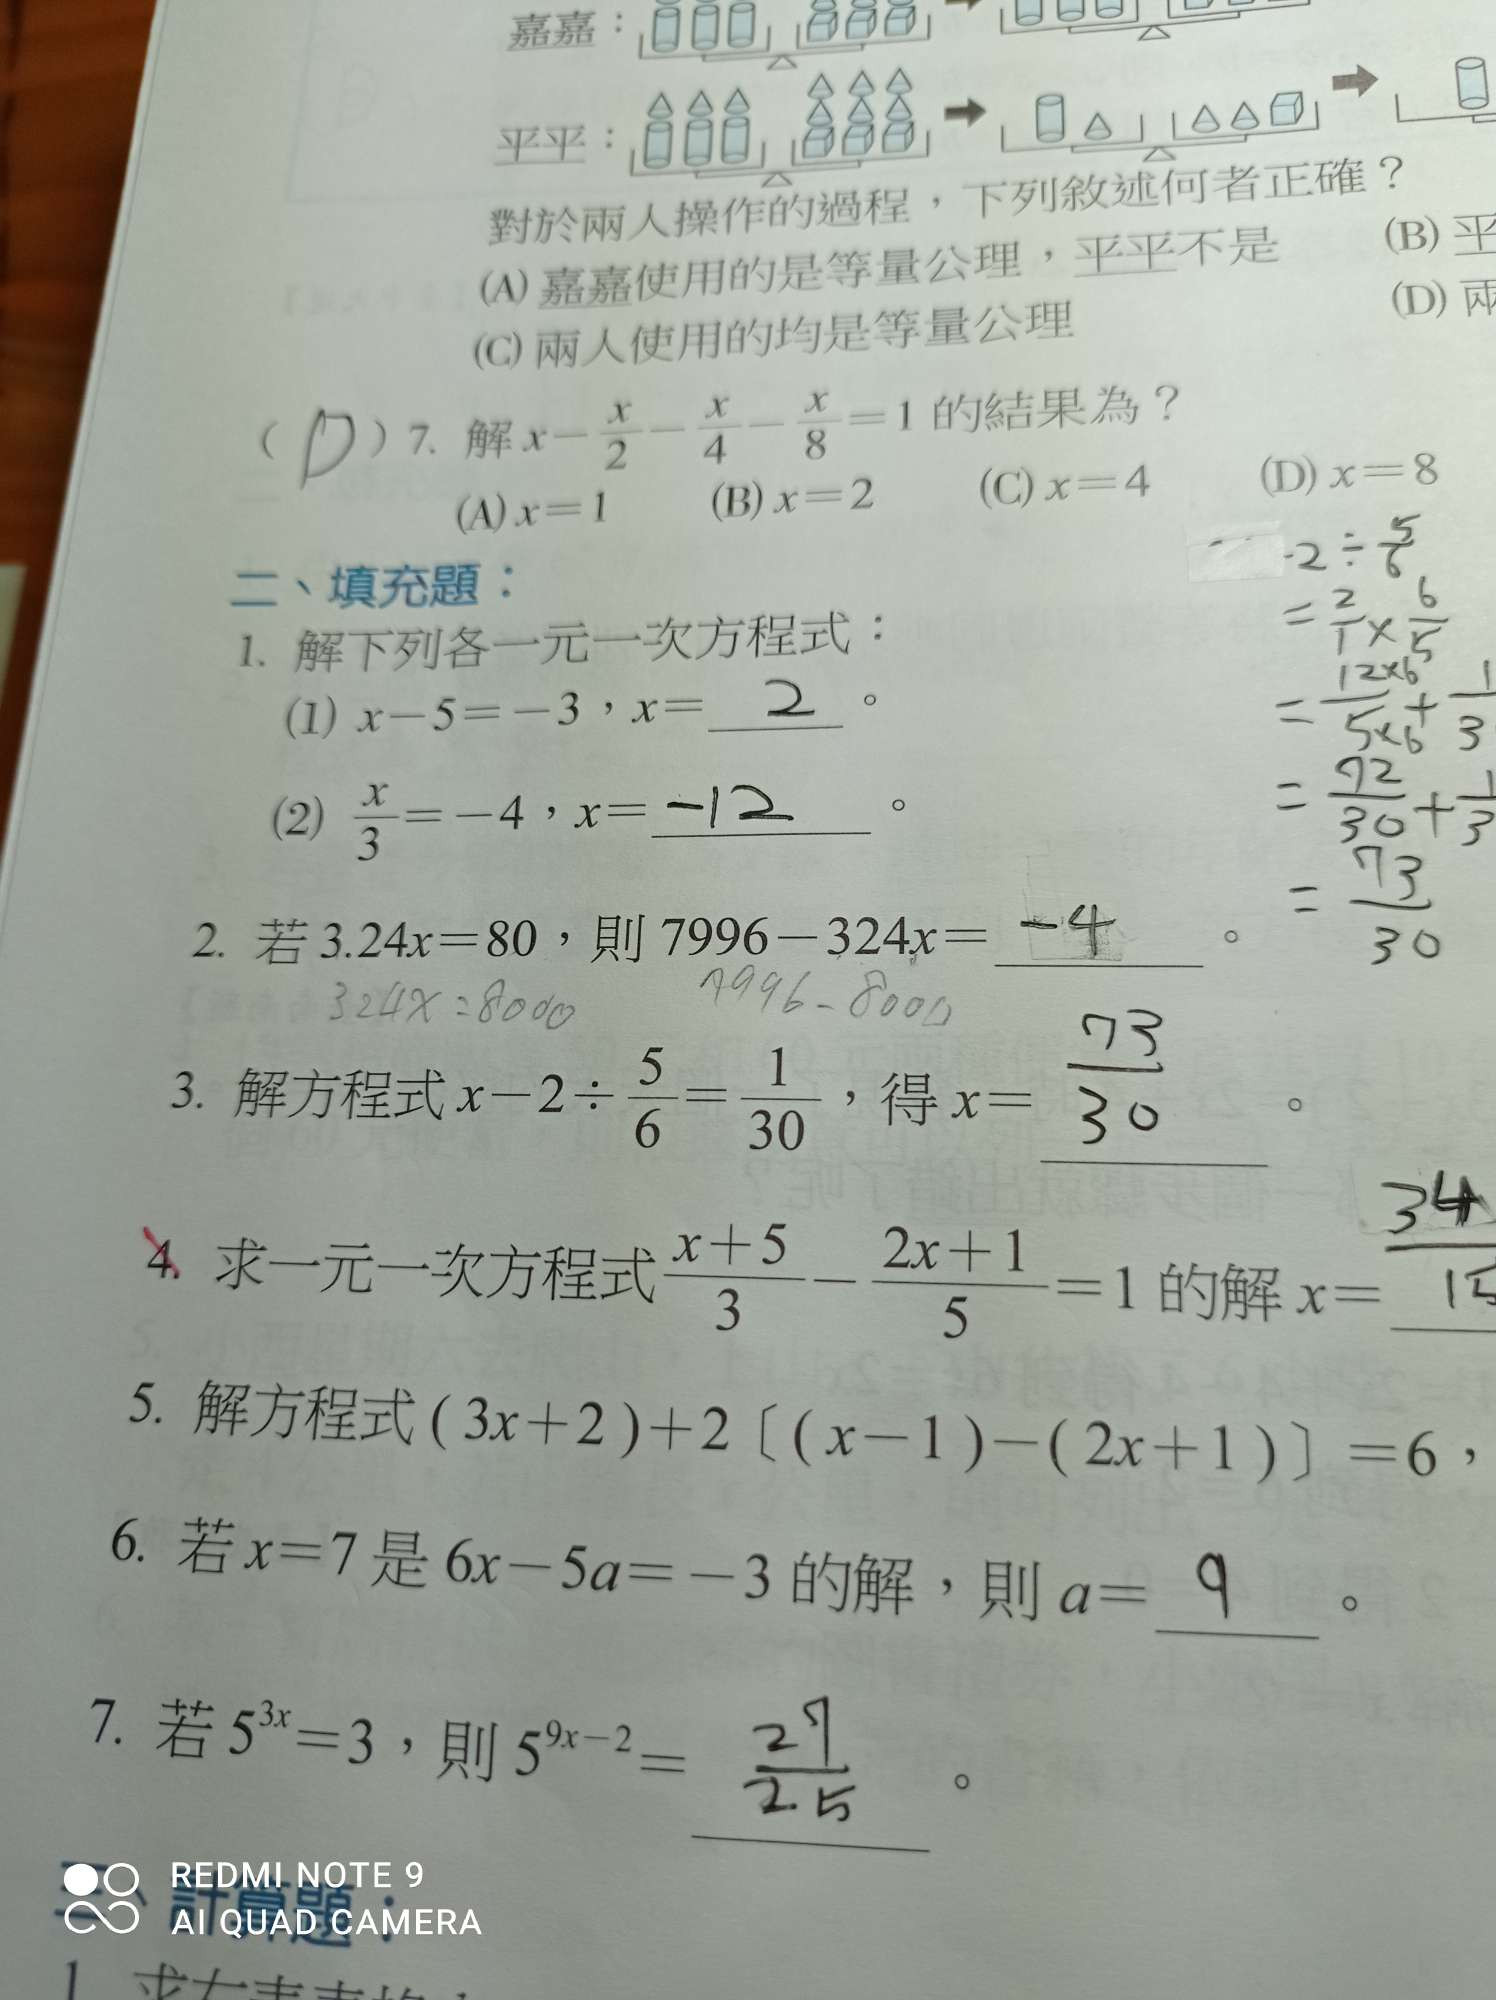 嘉嘉：
平平：
對於兩人操作的過程，下列敘述何者正確？
(A) 嘉嘉使用的是等量公理，平平不是 (B) 平
(C) 兩人使用的均是等量公理 (D) 兩
( D ) 7. 解 x－x/2－x/4－x/8＝1 的結果為？
(A) x＝1 (B) x＝2 (C) x＝4 (D) x＝8
二、填充題：
1. 解下列各一元一次方程式：
(1) x－5＝－3，x＝ 2 。
(2) x/3＝－4，x＝ -12 。
2. 若 3.24x＝80，則 7996－324x＝ -4 。
324x=8000 7996-8000
3. 解方程式 x－2÷5/6＝1/30，得 x＝ 73/30 。
4. 求一元一次方程式 (x＋5)/3－(2x＋1)/5＝1 的解 x＝ 34/15
5. 解方程式 ( 3x＋2 )＋2〔( x－1 )－( 2x＋1 )〕＝6，
6. 若 x＝7 是 6x－5a＝－3 的解，則 a＝ 9 。
7. 若 5^{3x}＝3，則 5^{9x－2}＝ 27/25 。
三、計算題：
1.
-2÷5/6
=2/1×6/5
=12×6/5×6+1/3
=72/30+1/3
=73/30
REDMI NOTE 9
AI QUAD CAMERA